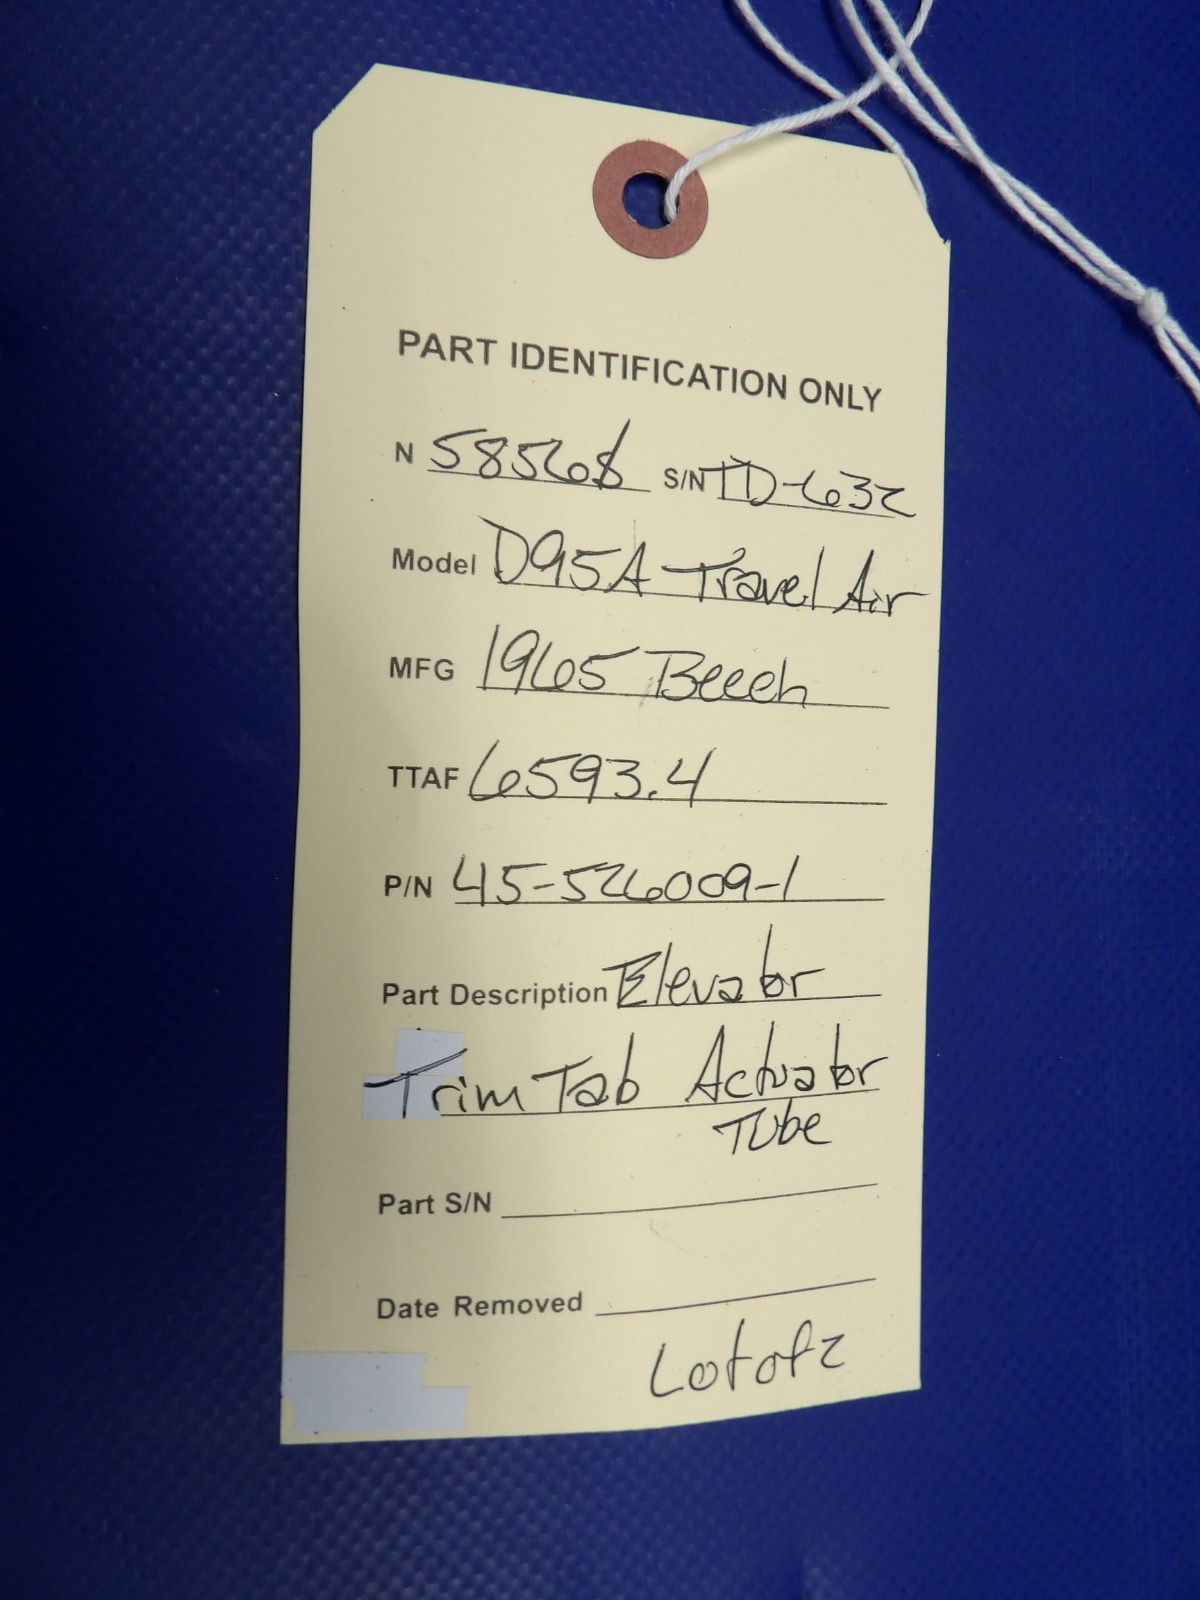 PART IDENTIFICATION ONLY
N 58568 S/N TD-632
Model D95A Travel Air
MFG 1965 Beech
TTAF 6593.4
P/N 45-526009-1
Part Description Elevator
Trim Tab Actuator
Tube
Part S/N
Date Removed
Lot of 2